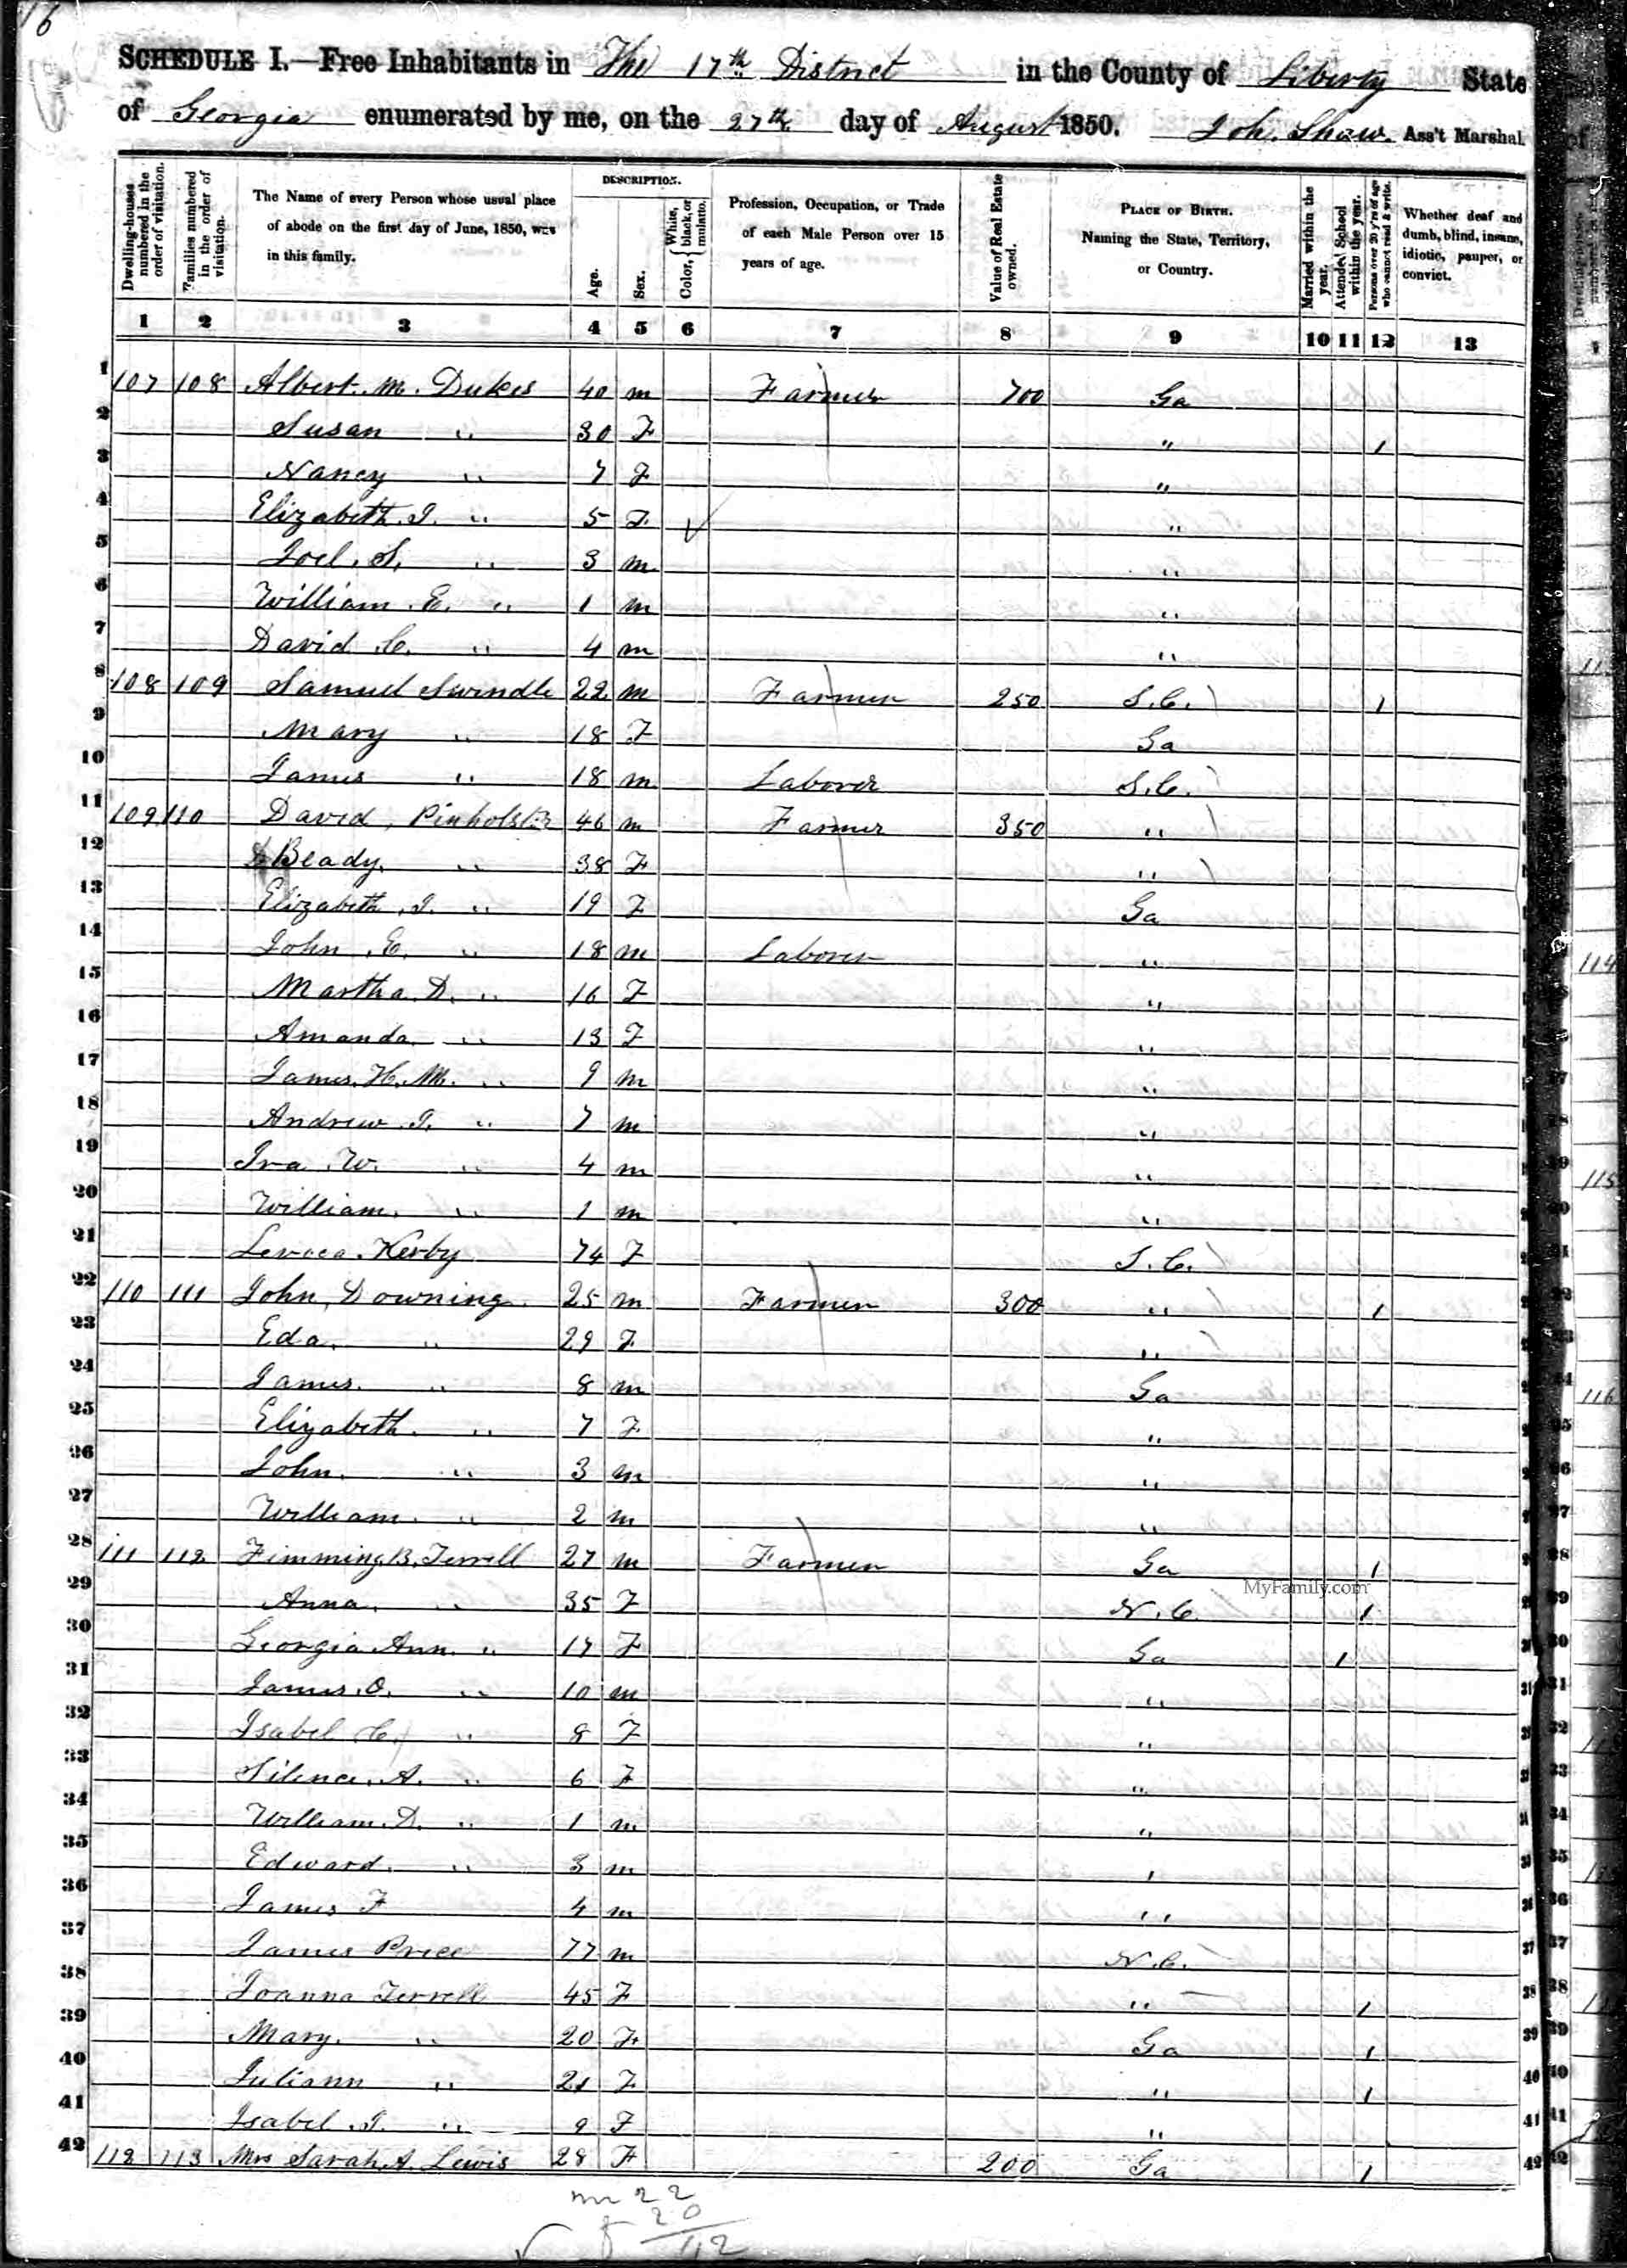 16
SCHEDULE I.—Free Inhabitants in The 17th District in the County of Liberty State
of Georgia enumerated by me, on the 27th day of August 1850. Joh. Shaw. Ass't Marshal.
Dwelling-houses numbered in the order of visitation.
Families numbered in the order of visitation.
The Name of every Person whose usual place of abode on the first day of June, 1850, was in this family.
DESCRIPTION.
Age.
Sex.
Color, { White, black, or mulatto.
Profession, Occupation, or Trade of each Male Person over 15 years of age.
Value of Real Estate owned.
PLACE OF BIRTH. Naming the State, Territory, or Country.
Married within the year.
Attended School within the year.
Persons over 20 y'rs of age who cannot read & write.
Whether deaf and dumb, blind, insane, idiotic, pauper, or convict.
1 2 3 4 5 6 7 8 9 10 11 12 13
1 107 108 Albert. M. Dukes 40 m Farmer 700 Ga
2 Susan " 30 F " 1
3 Nancy " 7 F "
4 Elizabeth. J. " 5 F "
5 Joel. S. " 3 m "
6 William. E. " 1 m "
7 David. C. " 4 m "
8 108 109 Samuel Swindle 22 m Farmer 250 S.C. 1
9 Mary " 18 F Ga
10 James " 18 m Laborer S.C.
11 109 110 David, Pinholster 46 m Farmer 350 "
12 Beady. " 38 F "
13 Elizabeth. J. " 19 F Ga
14 John. E. " 18 m Laborer "
15 Martha. D. " 16 F "
16 Amanda " 13 F "
17 James. H. M. " 9 m "
18 Andrew. J. " 7 m "
19 Ira. W. " 4 m "
20 William. " 1 m "
21 Kerby 74 F S.C.
22 110 111 John, Downing. 25 m Farmer 300 " 1
23 Eda. " 29 F "
24 James. " 8 m Ga
25 Elizabeth. " 7 F "
26 John. " 3 m "
27 William. " 2 m "
28 111 112 Fimming. B. Terrell 27 m Farmer Ga 1
MyFamily.com
29 Anna. " 35 F N.C. 1
30 Georgia Ann. " 17 F Ga 1
31 James. O. " 10 m "
32 Isabel C. " 8 F "
33 Silence. A. " 6 F "
34 William. D. " 1 m "
35 Edward. " 3 m "
36 James F 4 m "
37 James Price 77 m N.C.
38 Joanna Terrell 45 F " 1
39 Mary. " 20 F Ga 1
40 Juliann " 21 F " 1
41 Isabel. J. " 9 F "
42 112 113 Mrs Sarah. A. Lewis 28 F 200 Ga 1
m 22
f 20